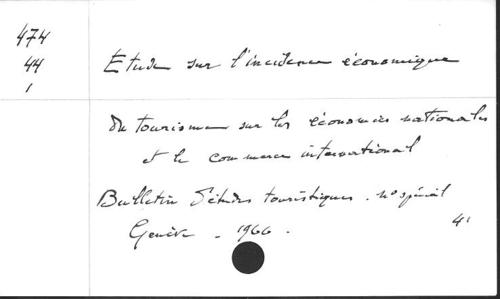 474
44
1
Etude sur l'incidence économique
du tourisme sur les économies nationales
et le commerce international
Bulletin d'études touristiques. n° spécial
4'
Genève - 1966.